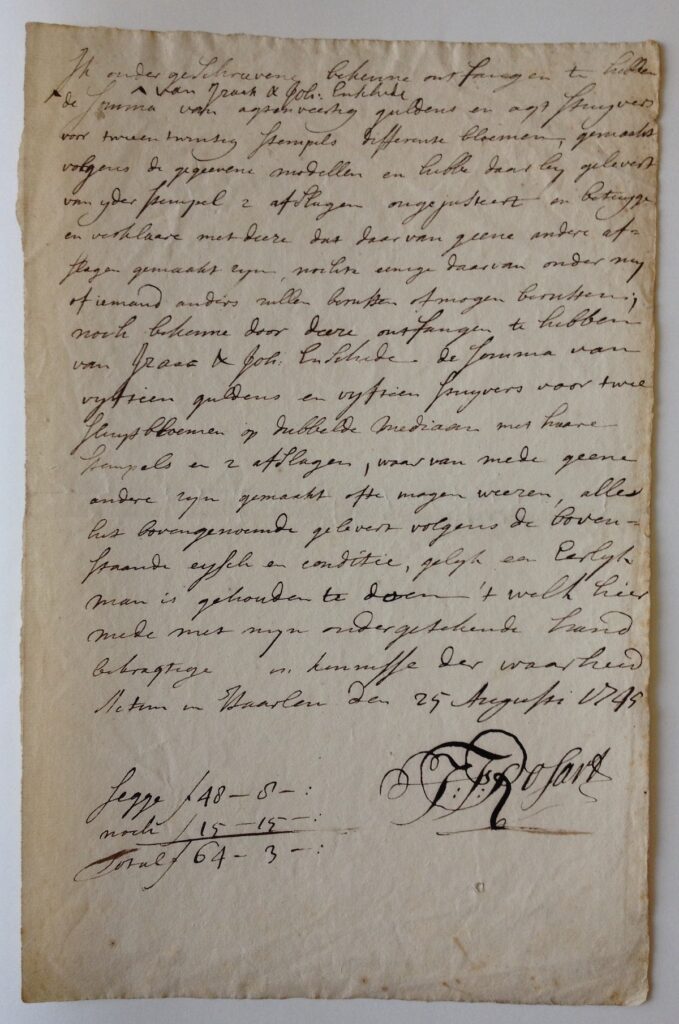 Ik ondergeschreevene bekenne ontfangen te hebben
van Izaak & Joh. Enschede
de Somma van agtenveertig guldens en agt stuyvers
voor tweentwintig stempels differente bloemen, gemaakt
volgens de gegeevene modellen en hebbe daar by gelevert
van yder stempel 2 afslagen ongejusteert en betuyge
en verklaare met deeze dat daar van geene andere af=
slagen gemaakt zyn, nochte eenige daarvan onder my
of iemand anders zullen berusten of mogen berusten;
noch bekenne door deeze ontfangen te hebben
van Izaac & Joh. Enschede de Somma van
vyftien guldens en vyftien stuyvers voor twee
sluytbloemen op dubbelde Mediaan met haare
stempels en 2 afslagen, waar van mede geene
andere zyn gemaakt ofte mogen weezen, alles
het bovengenoemde gelevert volgens de boven-
staande eysch en conditie, gelyk een Eerlyk
man is gehouden te doen 't welk hier
mede met myn ondergetekende hand
bekragtige in kennisse der waarheid
Actum in Haarlem den 25 Augusti 1745
J: F: Rosart
segge f 48 - 8 - :
noch f 15 - 15 - :
Total f 64 - 3 - :